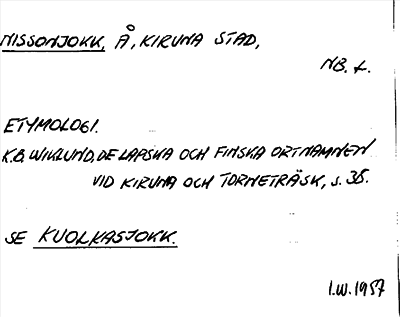 NISSONJOKK, Å, KIRUNA STAD,
NB. L.
ETYMOLOGI.
K.B. WIKLUND, DE LAPSKA OCH FINSKA ORTNAMNEN
VID KIRUNA OCH TORNETRÄSK, S. 35.
SE KUOLKASJOKK.
I.W. 1957